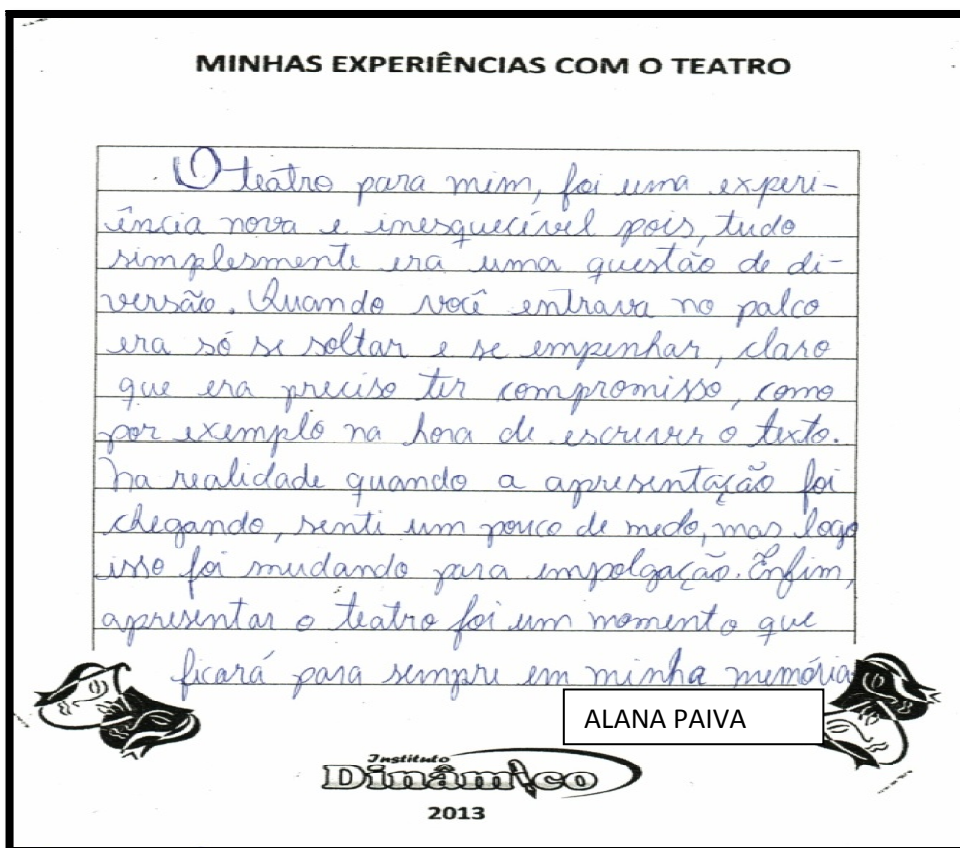 MINHAS EXPERIÊNCIAS COM O TEATRO
O teatro para mim, foi uma experi-
ência nova e inesquecível pois, tudo
simplesmente era uma questão de di-
versão. Quando você entrava no palco
era só se soltar e se empenhar, claro
que era preciso ter compromisso, como
por exemplo na hora de escrever o texto.
Na realidade quando a apresentação foi
chegando, senti um pouco de medo, mas logo
isso foi mudando para empolgação. Enfim,
apresentar o teatro foi um momento que
ficará para sempre em minha memória
ALANA PAIVA
Instituto
Dinâmico
2013